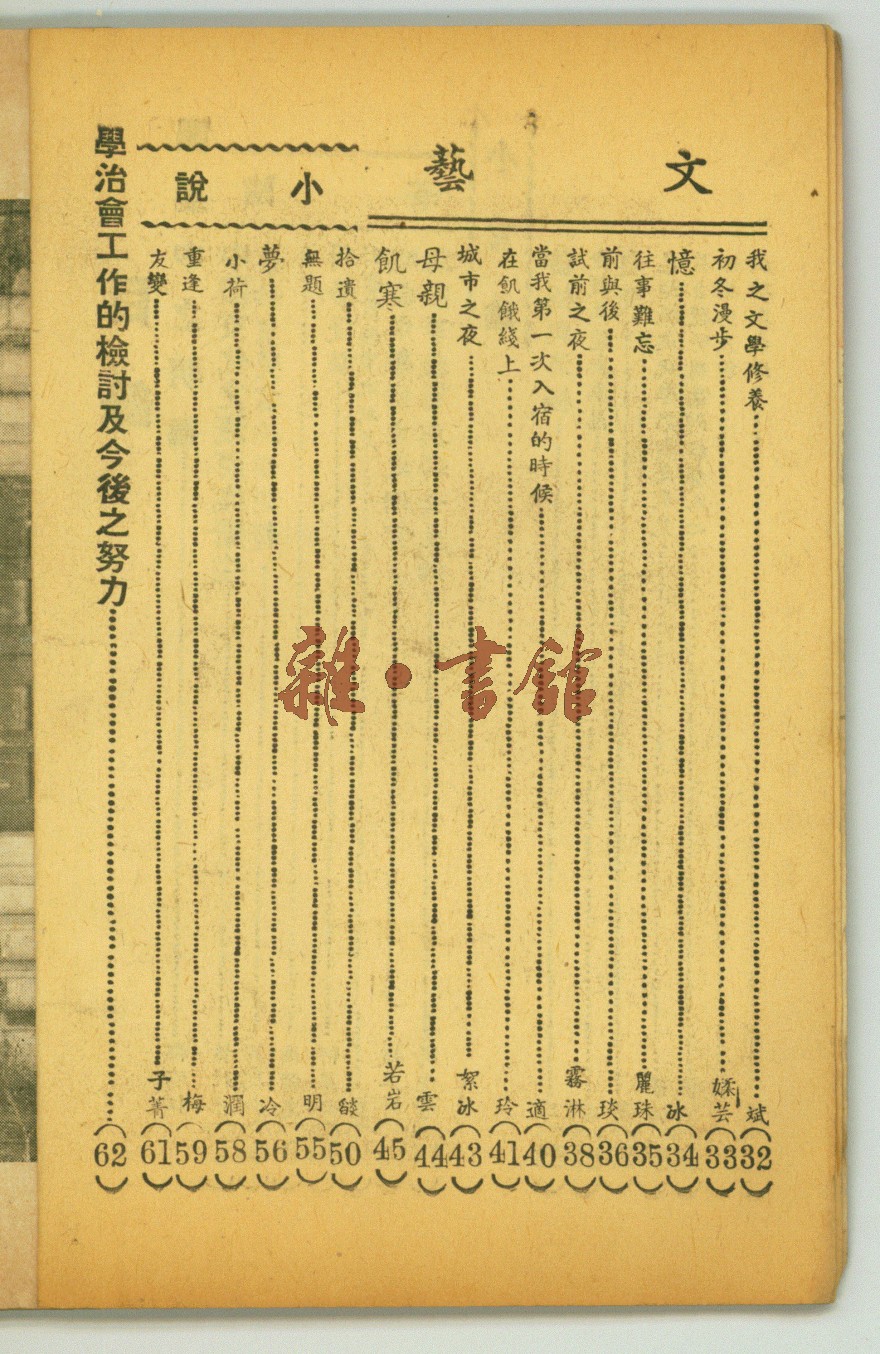 文藝
我之文學修養 斌 (32)
初冬漫步 婇芸 (33)
憶 冰 (34)
往事難忘 麗珠 (35)
前與後 琰 (36)
試前之夜 霧淋 (38)
當我第一次入宿的時候 適 (40)
在飢餓綫上 玲 (41)
城市之夜 絮冰 (43)
母親 雲 (44)
飢寒 若岩 (45)
小說
拾遺 燄 (50)
無題 明 (55)
夢 冷 (56)
小荷 潤 (58)
重逢 梅 (59)
友變 子菁 (61)
學治會工作的檢討及今後之努力 (62)
雜·書館